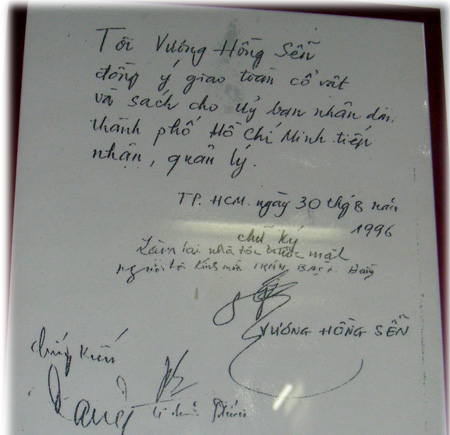 Tôi Vương Hồng Sễn
đồng ý giao toàn cổ vật
và sách cho Uỷ ban nhân dân
thành phố Hồ Chí Minh tiếp
nhận, quản lý.
TP. HCM. ngày 30 thg 8 năm
1996
chữ ký
Làm tại nhà tôi trước mặt
VƯƠNG HỒNG SỄN
chứng kiến